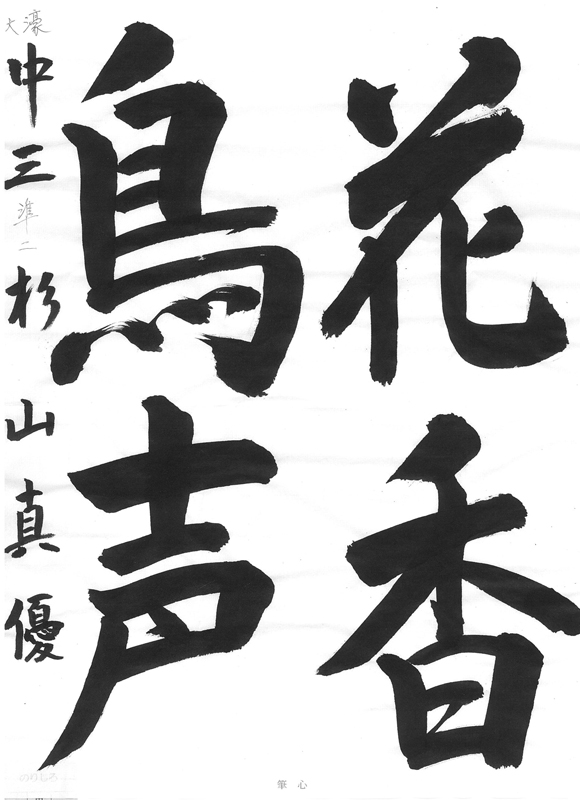 花香
鳥声
大濠
中三 準二 杉山真優
筆心
のりしろ